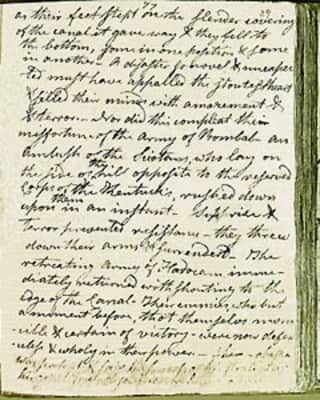 77 29
as their feet slept on the slender covering
of the canal it gave way & they fell to
the bottom, some in one position & some
in another - A disaster so novel & unexpec
ted must have appalled the stoutest heart
& filled their minds with amazement &
& terror - Nor did this compleat their
misfortune of the Army of Rambal - an
ambush of the Sciotans, who lay on
the side of the hill opposite to the reserved
Corps of the Kentucks, rushed down
upon them in an instant - Surprise &
terror prevented resistance - they threw
down their arms & surrendered - The
retreating Army of Hadocam imme-
diately returned with shouting to the
Edge of the Canal - Their enemies, who but
a moment before, thot themselves invin
cible & certain of victory - were now defen
celess & wholy in their power -